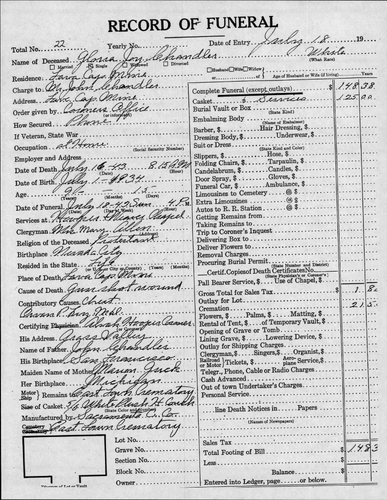 RECORD OF FUNERAL
Total No. 22 Yearly No. Date of Entry July 18 19
Name of Deceased Gloria Joy Chandler White
Married Single Divorced (What Race)
Residence Lava Cap Mine
Husband Wife Widow of
Age of Husband or Wife (if living)
Charge to Mr. John Chandler
Address Lava Cap Mine
Order given by Coroners Office
How Secured Phone
If Veteran, State War
Occupation at Home
(Social Security Number)
Employer and Address
Date of Death July 16-43 8:15 P.M.
Date of Birth July 1-1934
Age
Date of Funeral July 18-43 Sun. 4 P.M.
Services at
Clergyman Mrs. Mary Allen
Religion of the Deceased Protestant
Birthplace Nevada City
Resided in the State Life
Place of Death Lava Cap Mine
Cause of Death Gun shot wound
Contributory Causes Chest
Certifying Physician Coroner
His Address Grass Valley
Name of Father John Chandler
His Birthplace San Francisco
Maiden Name of Mother Marion
Her Birthplace Michigan
Motor Ship Remains to East Lawn Crematory
Size of Casket
(State Color and Number)
Manufactured by Sacramento C. Co.
Cemetery
Crematory East Lawn Crematory
Complete Funeral (except outlays) $ 148 38
Casket Services 125 00
Burial Vault or Box
(State Kind)
Embalming Body
Barber, $ Hair Dressing, $
Dressing Body, $ Underwear, $
Suit or Dress
(State Kind and Color)
Slippers, $ Hose, $
Folding Chairs, $ Tarpaulin, $
Candelabrum, $ Candles, $
Door Spray, $ Gloves, $
Funeral Car, $ Ambulance, $
Limousines to Cemetery @ $
Extra Limousines @ $
Autos to R. R. Station @ $
Getting Remains from
Taking Remains to
Trip to Coroner's Inquest
Delivering Box to
Deliver Flowers to
Removal Charges
Procuring Burial Permit
Certif. Copies of Death Certificate No.
Pall Bearer Service, $ Use of Chapel, $
Gross Total for Sales Tax $ 1 8
Outlay for Lot 21 5
Cremation
Flowers, $ Palms, $ Matting, $
Rental of Tent, $ of Temporary Vault, $
Opening of Grave or Tomb
Lining Grave, $ Lowering Device, $
Outlay for Shipping Charges
Clergyman, $ Singers, $ Organist, $
Telegr., Phone, Cable or Radio Charges
Cash Advanced
Out of town Undertaker's Charges
Personal Service
line Death Notices in Papers
(Names of Newspapers)
Sales Tax
Total Footing of Bill $ 148 3
Less
Balance $
Entered into Ledger, page or below.
Lot No.
Grave No.
Section No.
Block No.
Owner